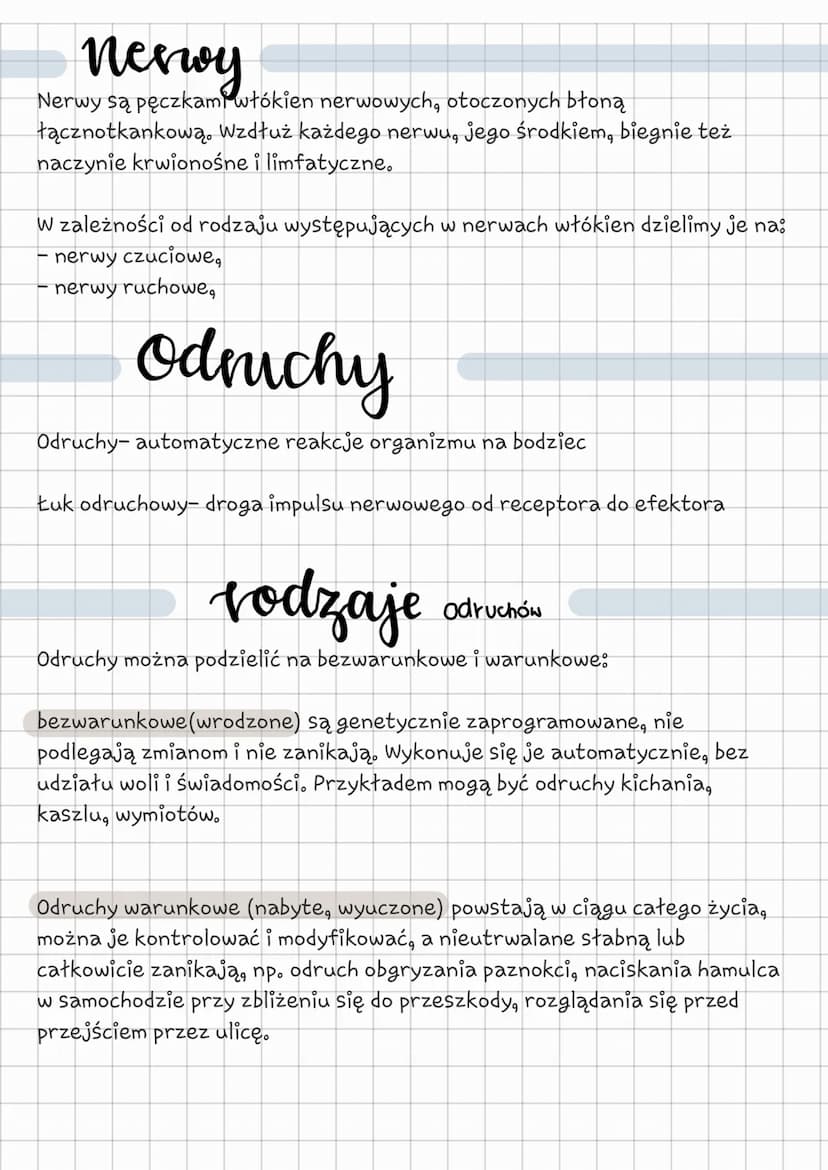 Nerwy
Nerwy są pęczkami włókien nerwowych, otoczonych błoną
łącznotkankową. Wzdłuż każdego nerwu, jego środkiem, biegnie też
naczynie krwionośne i limfatyczne.
W zależności od rodzaju występujących w nerwach włókien dzielimy je na:
- nerwy czuciowe,
- nerwy ruchowe,
Odruchy
Odruchy- automatyczne reakcje organizmu na bodziec
Łuk odruchowy- droga impulsu nerwowego od receptora do efektora
rodzaje odruchów
Odruchy można podzielić na bezwarunkowe i warunkowe:
bezwarunkowe(wrodzone) są genetycznie zaprogramowane, nie
podlegają zmianom i nie zanikają. Wykonuje się je automatycznie, bez
udziału woli i świadomości. Przykładem mogą być odruchy kichania,
kaszlu, wymiotów.
Odruchy warunkowe (nabyte, wyuczone) powstają w ciągu całego życia,
można je kontrolować i modyfikować, a nieutrwalane słabną lub
całkowicie zanikają, np. odruch obgryzania paznokci, naciskania hamulca
w samochodzie przy zbliżeniu się do przeszkody, rozglądania się przed
przejściem przez ulicę.